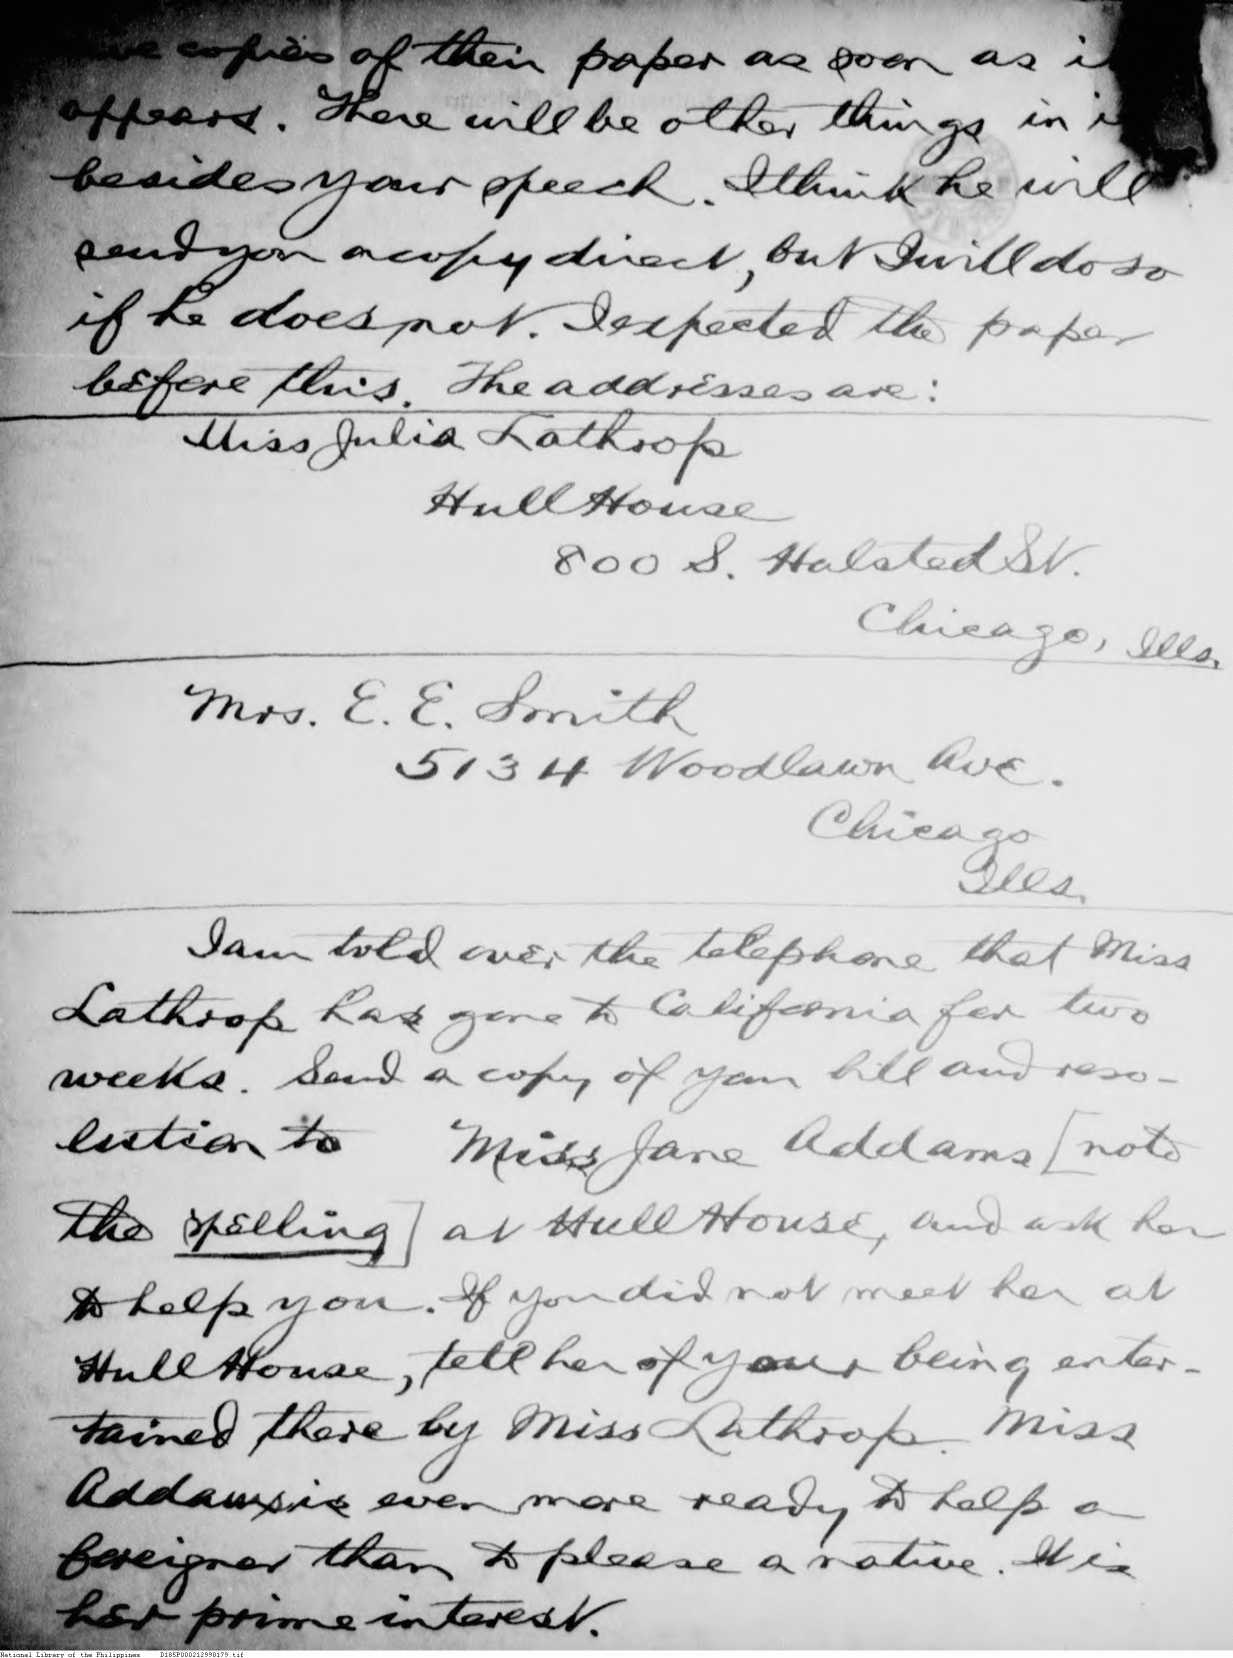 copies of their paper as soon as
appears. There will be other things in
besides your speech. I think he will
send you a copy direct, but I will do so
if he does not. I expected the paper
before this. The addresses are:
Miss Julia Lathrop
Hull House
800 S. Halsted St.
Chicago, Ills.
Mrs. E. E. Smith
5134 Woodlawn Ave.
Chicago
Ills.
I am told over the telephone that Miss
Lathrop has gone to California for two
weeks. Send a copy of your bill and reso-
lution to Miss Jane Addams [note
the spelling] at Hull House, and ask her
to help you. If you did not meet her at
Hull House, tell her of your being enter-
tained there by Miss Lathrop. Miss
Addams is even more ready to help a
foreigner than to please a native. It is
her prime interest.
National Library of the Philippines D185P000212998179.tif